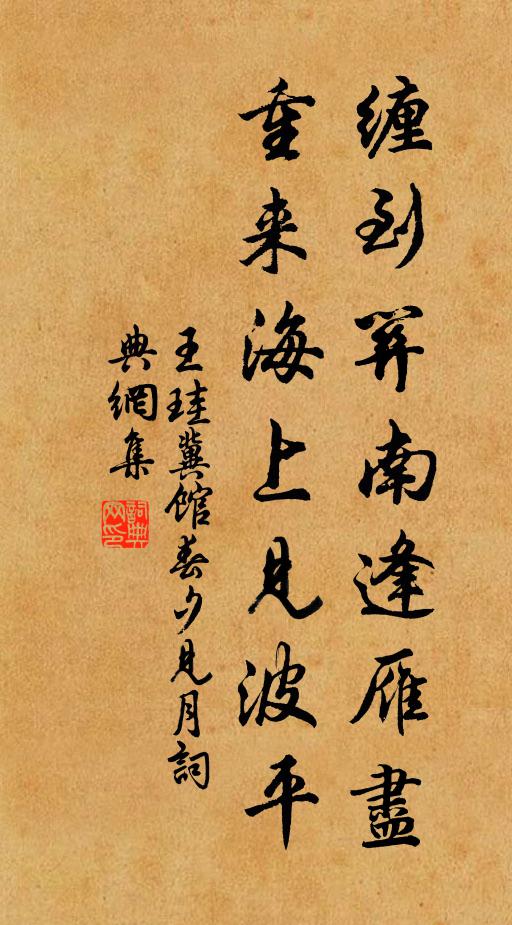 缠到關南逢雁盡
重来海上見波平
王珪冀館春夕見月詞
典網集
詞典
网印